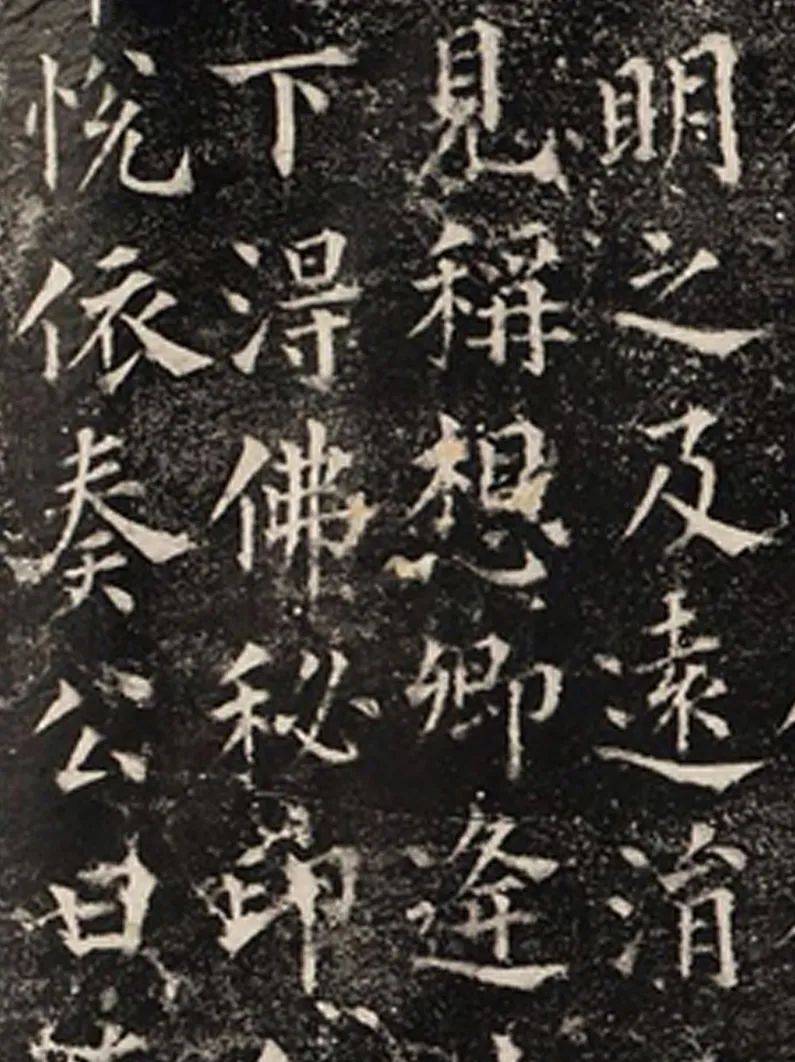 明之及遠湏
見稱想卿逢
下淂佛秘印
悅依奏公甘